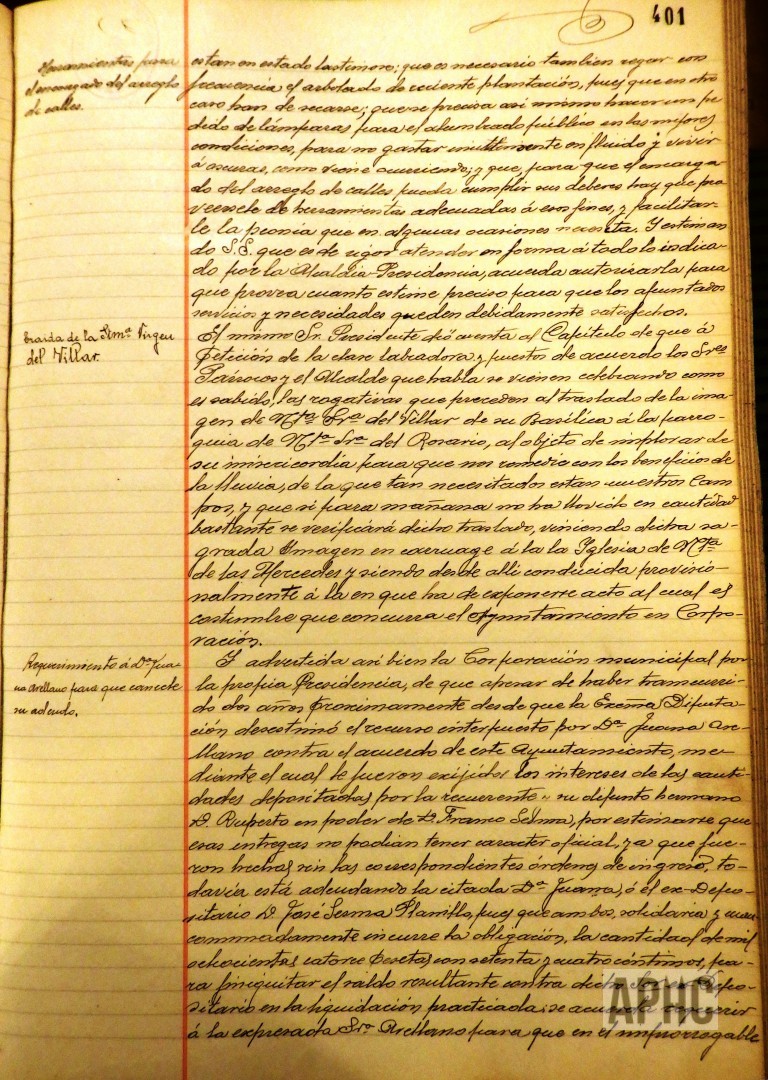 401
Herramientas para
el encargado del arreglo
de calles.
estan en estado lastimoso; que es necesario tambien regar con
frecuencia el arbolado de reciente plantación, pues que en otro
caso han de secarse; que se precisa asi mismo hacer un pe-
dido de lámparas para el alumbrado público en las mejores
condiciones, para no gastar inutilmente en fluido y vivir
á oscuras, como viene ocurriendo; y que, para que el encarga-
do del arreglo de calles pueda cumplir sus deberes hay que pro-
veersele de herramientas adecuadas á esos fines, y facilitar-
le la peonia que en algunas ocasiones necesita. Y estiman-
do S.E. que es de rigor atender en forma á todo lo indica-
do por la Alcaldia-Presidencia, acuerda autorizarla para
que provea cuanto estime preciso para que los apuntados
servicios y necesidades queden debidamente satisfechos.
Traida de la Sma. Virgen
del Villar.
El mismo Sr. Presidente dió cuenta al Capítulo de que á
petición de la clase labradora y puestos de acuerdo los Sres
Párrocos y el Alcalde que habla se vienen celebrando como
es sabido, las rogativas que preceden al traslado de la ima-
gen de Ntra. Sra. del Villar de su Basílica á la parro-
quia de Ntra. Sra. del Rosario, al objeto de implorar de
su misericordia para que nos remedie con los beneficios de
la lluvia, de la que tan necesitados estan nuestros cam-
pos, y que si para mañana no ha llovido en cantidad
bastante se verificará dicho traslado, viniendo dicha sa-
grada Imagen en carruage á la la Iglesia de Ntra.
de las Mercedes y siendo desde alli conducida provisio-
nalmente á la en que ha de exponerse acto al cual es
costumbre que concurra el Ayuntamiento en Corpo-
ración.
Requerimiento á Dª Jua-
na Arellano para que cancele
su adeudo.
Y advertida asi bien la Corporación municipal por
la propia Presidencia, de que apesar de haber transcurri-
do dos años proximamente desde que la Excma Diputa-
ción desestimó el recurso interpuesto por Dª Juana Are-
llano contra el acuerdo de este Ayuntamiento, me-
diante el cual le fueron exijidos los intereses de las canti-
dades depositadas por la recurrente su difunto hermano
D. Ruperto en poder de D. Franco Selma, por estimarse que
esas entregas no podian tener caracter oficial, ya que fue-
ron hechas sin las correspondientes órdenes de ingreso, to-
davia está adeudando la citada Dª Juana, ó el ex-Depo-
sitario D. José Sesma Planillo, pues que ambos, solidaria y man-
comunadamente incurre la obligación, la cantidad de mil
ochocientas catorce pesetas con setenta y cuatro céntimos, pa-
ra finiquitar el saldo resultante contra dicho Depo-
sitario en la liquidación practicada; se acuerda requerir
á la expresada Sra. Arellano para que en el improrrogable
APHC